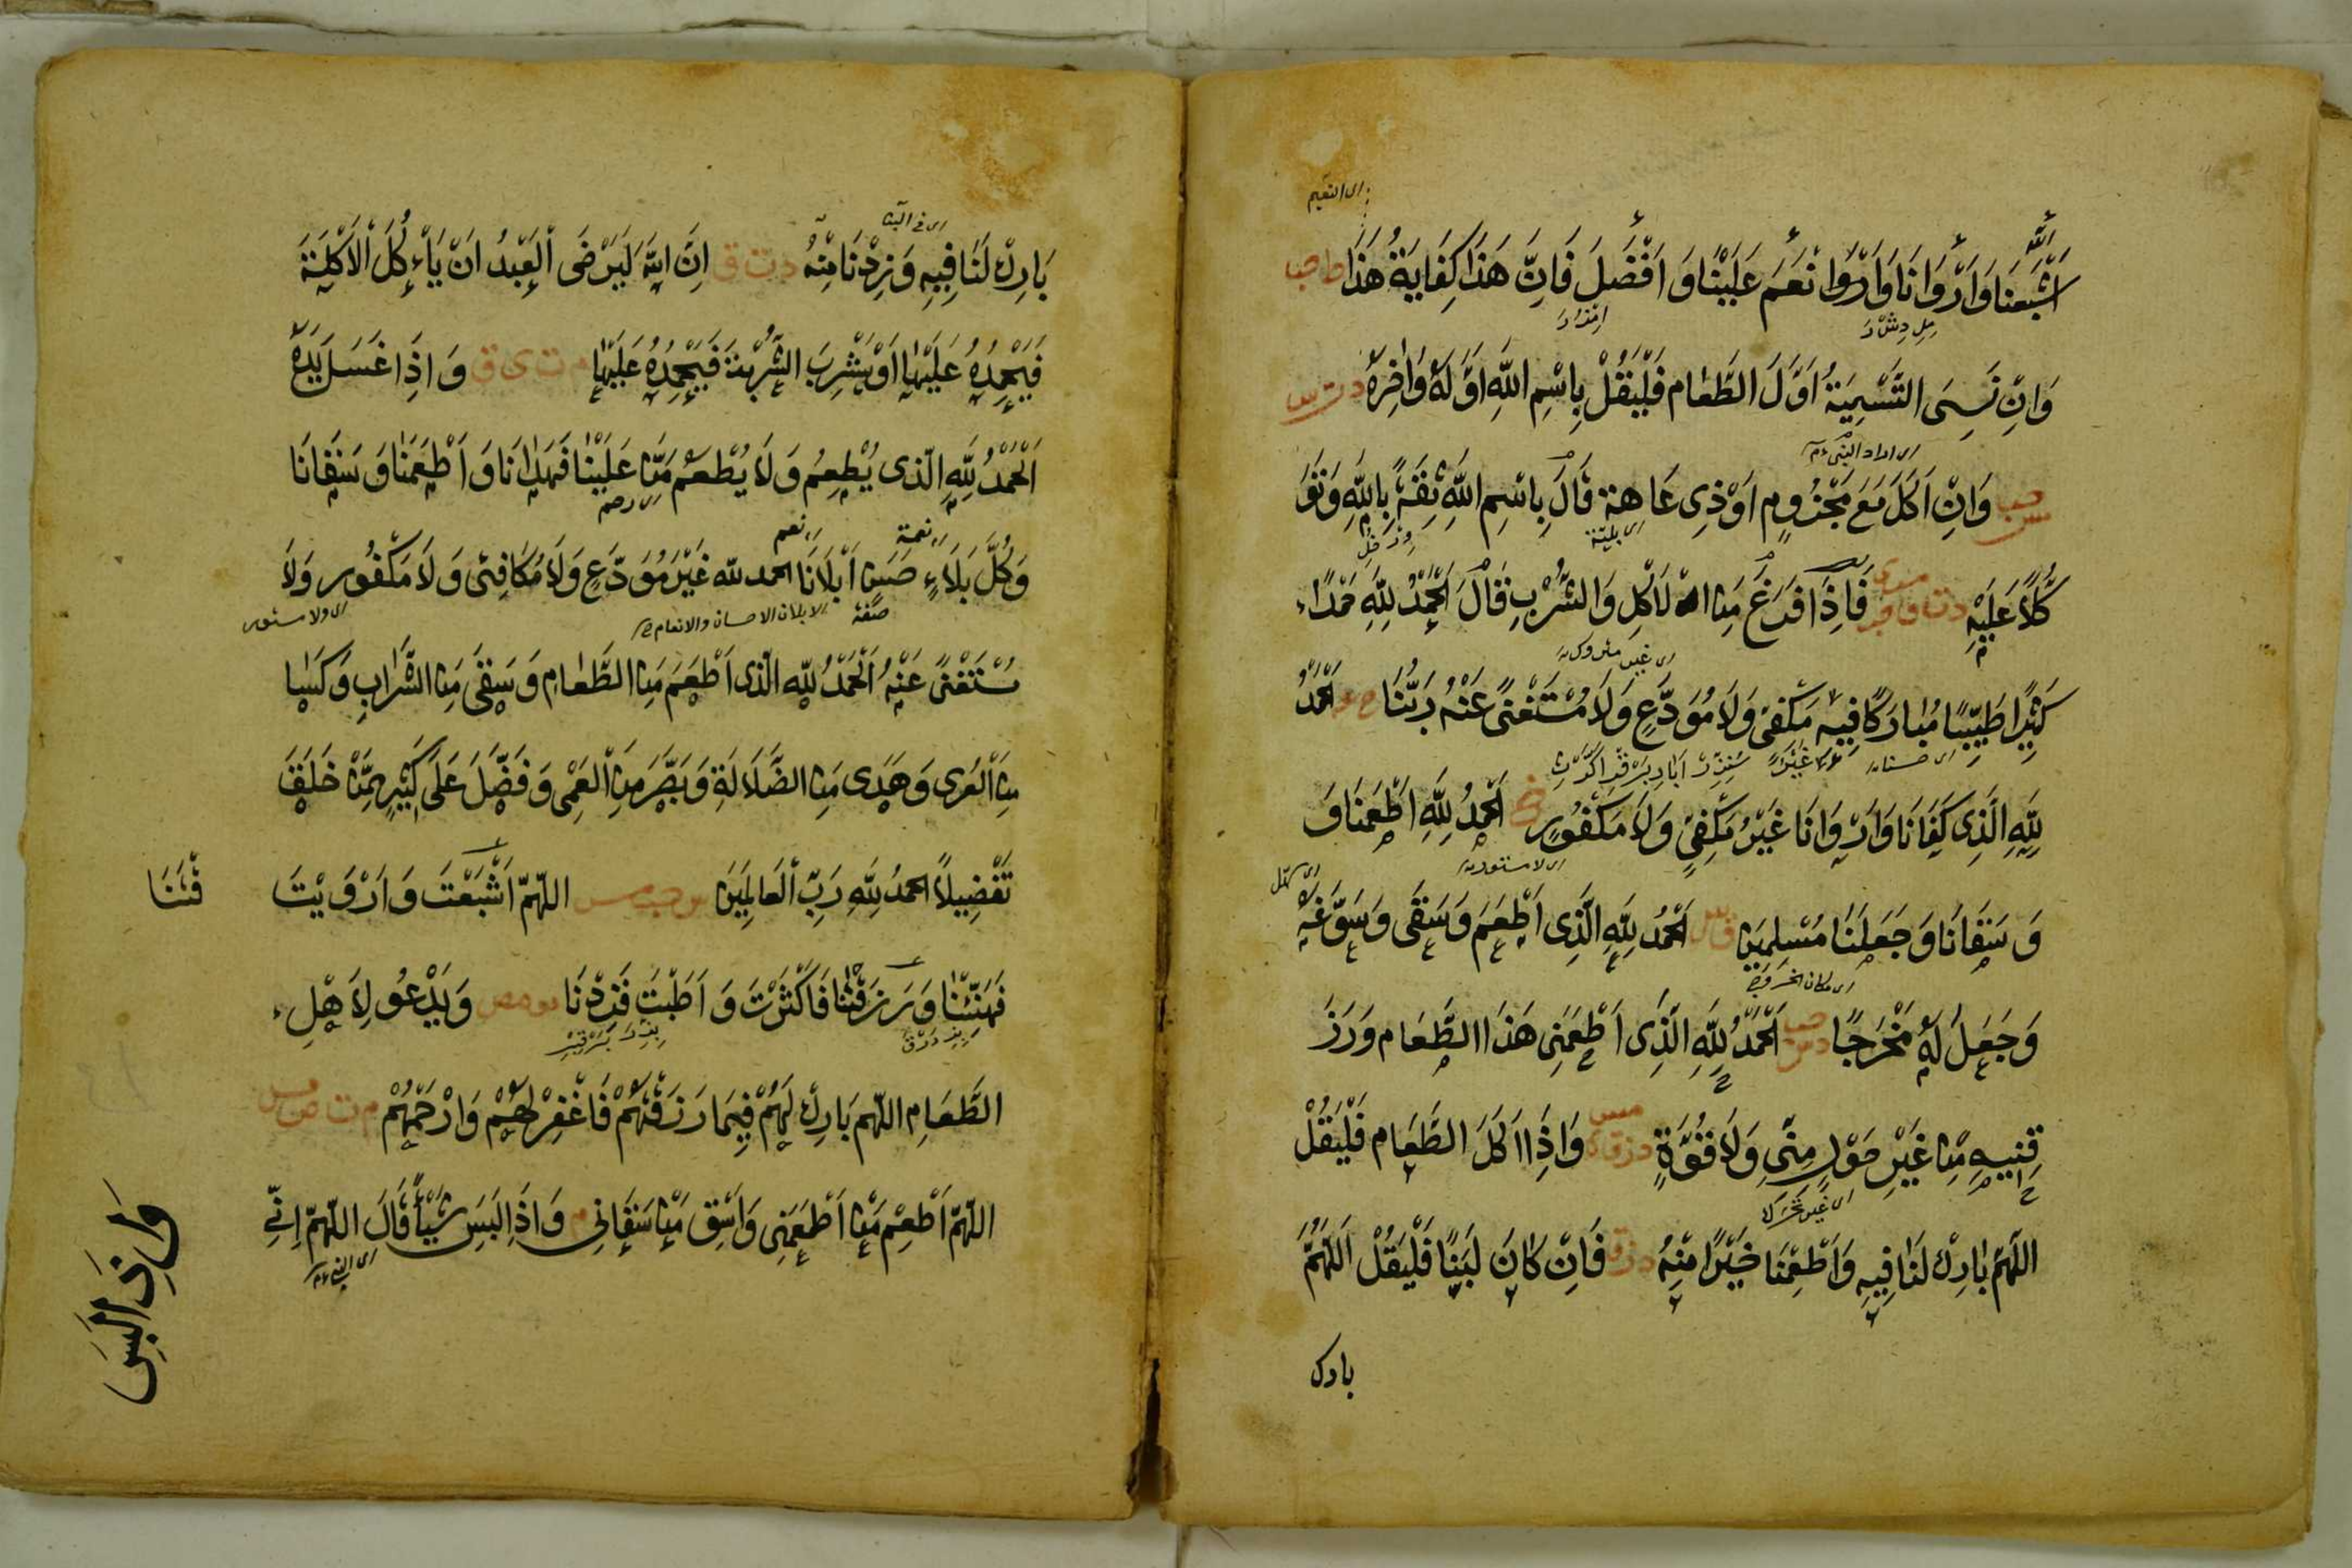 اى النعيم
الله
اَشْبَعَنَا وَاَرْوَانَا وَاَرْوَا نْعَمَ عَلَيْنَا وَ اَفْضَلَ فَاِنَّ هَذَا كِفَايَةُ هَذَا حب
وَاِنْ نَسِىَ التَّسْمِيَةُ اَوَّلَ الطَّعَام فَلْيَقُلْ بِاسْمِ اللّهِ اَوَّلَهُ وَاٰخِرَهُ د ت س
اى اراد النبى
حب وَاِنْ اَكَلَ مَعَ مَجْذُومٍ اَوْ ذِى عَاهَة قَالَ بِاسْمِ اللّهِ ثِقَةً بِاللّهِ وَتَوَ
اى بلية
كُّلًا عَلَيْهِ د ت ق حب فَاِذَا فَرَغَ مِنَ الْاَكْلِ وَالشُّرْبِ قَالَ اَلْحَمْدُ لِلّهِ حَمْدًا
اى غير متروك
كَثِيرًا طَيِّبًا مُبَارَكًا فِيهِ غَيْرَ مَكْفِىٍّ وَلَا مُوَدَّعٍ وَلَا مُسْتَغْنًى عَنْهُ رَبَّنَا خ عه اَلْحَمْدُ
لِلّهِ الَّذِى كَفَانَا وَاَرْوَانَا غَيْرَ مَكْفِىٍّ وَلَا مَكْفُورٍ خ اَلْحَمْدُ لِلّهِ اَطْعَمَنَا وَ
اى لا مستور
وَ سَقَانَا وَجَعَلَنَا مُسْلِمِينَ اَلْحَمْدُ لِلّهِ الَّذِى اَطْعَمَ وَسَقَى وَسَوَّغَهُ
اى مكان الخروج
وَجَعَلَ لَهُ مَخْرَجًا د س حب اَلْحَمْدُ لِلّهِ الَّذِى اَطْعَمَنِى هَذَا الطَّعَام وَرَزَ
قَنِيهِ مِنْ غَيْرِ حَوْلٍ مِنِّى وَلَا قُوَّةٍ د ت ق مس وَاِذَا اَكَلَ الطَّعَام فَلْيَقُلْ
اَللّهُمَّ بَارِكْ لَنَا فِيهِ وَاَطْعِمْنَا خَيْرًا مِنْهُ د ت ق فَاِنْ كَانَ لَبَنًا فَلْيَقُلْ اَللّهُمَّ
بارك
بَارِكْ لَنَا فِيهِ وَزِدْنَا مِنْهُ د ت ق اِنَّ اللّهَ لَيَرْضَى الْعَبْدُ اَنْ يَأْكُلَ الْاَكْلَةَ
فَيَحْمَدُهُ عَلَيْهَا اَوْ يَشْرِبَ الشَّرْبَةَ فَيَحْمَدُهُ عَلَيْهَا م ت ى ق وَ اِذَا غَسَلَ يَدَهُ
اَلْحَمْدُ لِلّهِ الَّذى يُطْعِمُ وَلَا يُطْعَمُ مَنَّ عَلَيْنَا فَهَدَانَا وَ اَطْعَمَنَا وَ سَقَانَا
نعمة نعم
وَكُلَّ بَلَاءٍ حَسَنٍ اَبْلَانَا الحمد لله غَيْرَ مُوَدَّعٍ وَلَا مُكَافِىٍ وَ لَا مَكْفُور وَلَا
صفة الابلاء الاحسان والانعام اى ولا مستور
مُسْتَغْنًى عَنْهُ اَلْحَمْدُ لِلّهِ الَّذى اَطْعَمَ مِنَ الطَّعَام وَ سَقَى مِنَ الشَّرَابِ وَ كَسَا
مِنَ الْعُرى وَهَدَى مِنَ الضَّلَالَةِ وَ بَصَّرَ مِنَ الْعَمِى وَ فَضَّلَ عَلَى كَثِيرٍ مِمَّنْ خَلَقَ
تَفْضِيلًا الحمدُ لِلّهِ رَبِّ الْعَالَمِينَ س حب مس اللّهُمَّ اَشْبَعْتَ وَ اَرْوَيْتَ
فَهَنِّئْنَا وَ رَزَقْتَنَا فَاَكْثَرْتَ وَ اَطَبْتَ فَزِدْنَا مو مص وَ يَدْعُو لِاَهْلِ
الطَّعَامِ اللّهُمَّ بَارِكْ لَهُمْ فِيمَا رَزَقْتَهُمْ فَاغْفِرْ لَهُمْ وَارْحَمْهُمْ م ت س مص
اللّهُمَّ اَطْعِمْ مَنْ اَطْعَمَنِى وَاسْقِ مَنْ سَقَانِى م وَ اِذَا لَبِسَ شَيْئًا قَالَ اللّهُمَّ اِنِّى
وَاِذَا لَبِسَ